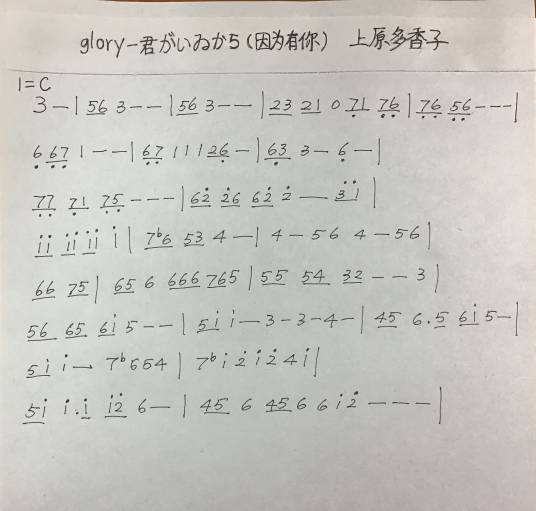 glory-君がいゐから(因为有你) 上原多香子
1=C
3 — | 56 3 - - | 56 3 - - | 23 21 0 7̣1 7̣6̣ | 7̣6̣ 5̣6̣ - - - |
6̣ 6̣7̣ 1 - - | 6̣7̣ 1 1 1 26̣ - | 6̣3 3 - 6̣ - |
7̣7̣ 7̣1 7̣5̣ - - - | 62̇ 2̇6 62̇ 2̇ — 3̇1̇ |
1̇1̇ 1̇1̇ 1̇1̇ 1̇ | 7ᵇ6 53 4 - | 4 - 56 4 - 56 |
66 75 | 65 6 666 765 | 55 54 32 - - 3 |
56 65 61̇ 5 - - | 51̇ 1̇ — 3 - 3 - 4 - | 45 6.5 61̇ 5 - |
51̇ 1̇ — 7ᵇ654 | 7ᵇ1̇2̇1̇2̇41̇ |
51̇ 1̇.1̇ 1̇2̇ 6 — | 45 6 45 6 6 1̇ 2̇ - - - |